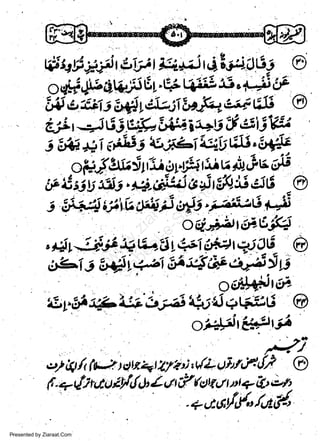 تفسیر نمونہ جلد ۵۰۱
۳۰ وَقَالَ نِسْوَةٌ فِى الْمَدِيْنَةِ امْرَاَتُ الْعَزِيْزِ تُرَاوِدُ فَتٰىهَا
عَنْ نَّفْسِهٖ ۚ قَدْ شَغَفَهَا حُبًّا ؕ اِنَّا لَنَرٰىهَا فِىْ ضَلٰلٍ مُّبِيْنٍ ○
۳۱ فَلَمَّا سَمِعَتْ بِمَكْرِهِنَّ اَرْسَلَتْ اِلَيْهِنَّ وَاَعْتَدَتْ لَهُنَّ
مُتَّكَاً وَّاٰتَتْ كُلَّ وَاحِدَةٍ مِّنْهُنَّ سِكِّيْنًا وَّقَالَتِ اخْرُجْ
عَلَيْهِنَّ ۚ فَلَمَّا رَاَيْنَهٗۤ اَكْبَرْنَهٗ وَقَطَّعْنَ اَيْدِيَهُنَّ وَ
قُلْنَ حَاشَ لِلّٰهِ مَا هٰذَا بَشَرًا ؕ اِنْ هٰذَاۤ اِلَّا مَلَكٌ كَرِيْمٌ ○
۳۲ قَالَتْ فَذٰلِكُنَّ الَّذِىْ لُمْتُنَّنِىْ فِيْهِ ؕ وَلَقَدْ رَاوَدْتُّهٗ عَنْ
نَّفْسِهٖ فَاسْتَعْصَمَ ؕ وَلَئِنْ لَّمْ يَفْعَلْ مَاۤ اٰمُرُهٗ لَيُسْجَنَنَّ وَ
لَيَكُوْنًا مِّنَ الصّٰغِرِيْنَ ○
۳۳ قَالَ رَبِّ السِّجْنُ اَحَبُّ اِلَىَّ مِمَّا يَدْعُوْنَنِىْۤ اِلَيْهِ ۚ
وَاِلَّا تَصْرِفْ عَنِّىْ كَيْدَهُنَّ اَصْبُ اِلَيْهِنَّ وَ اَكُنْ
مِّنَ الْجٰهِلِيْنَ ○
۳۴ فَاسْتَجَابَ لَهٗ رَبُّهٗ فَصَرَفَ عَنْهُ كَيْدَهُنَّ ؕ اِنَّهٗ
هُوَ السَّمِيْعُ الْعَلِيْمُ ○
ترجمہ
۳۰ شہر کی بعض عورتوں نے کہا: زوجۂ عزیز اپنے جوان (غلام) کو اپنی طرف
دعوت دیتی ہے اور اس جوان کا عشق اس کے دل کی گہرائیوں میں اتر گیا ہے۔ ہم
دیکھتی ہیں کہ وہ کھلی گمراہی میں ہے۔
Presented by Ziaraat.Com